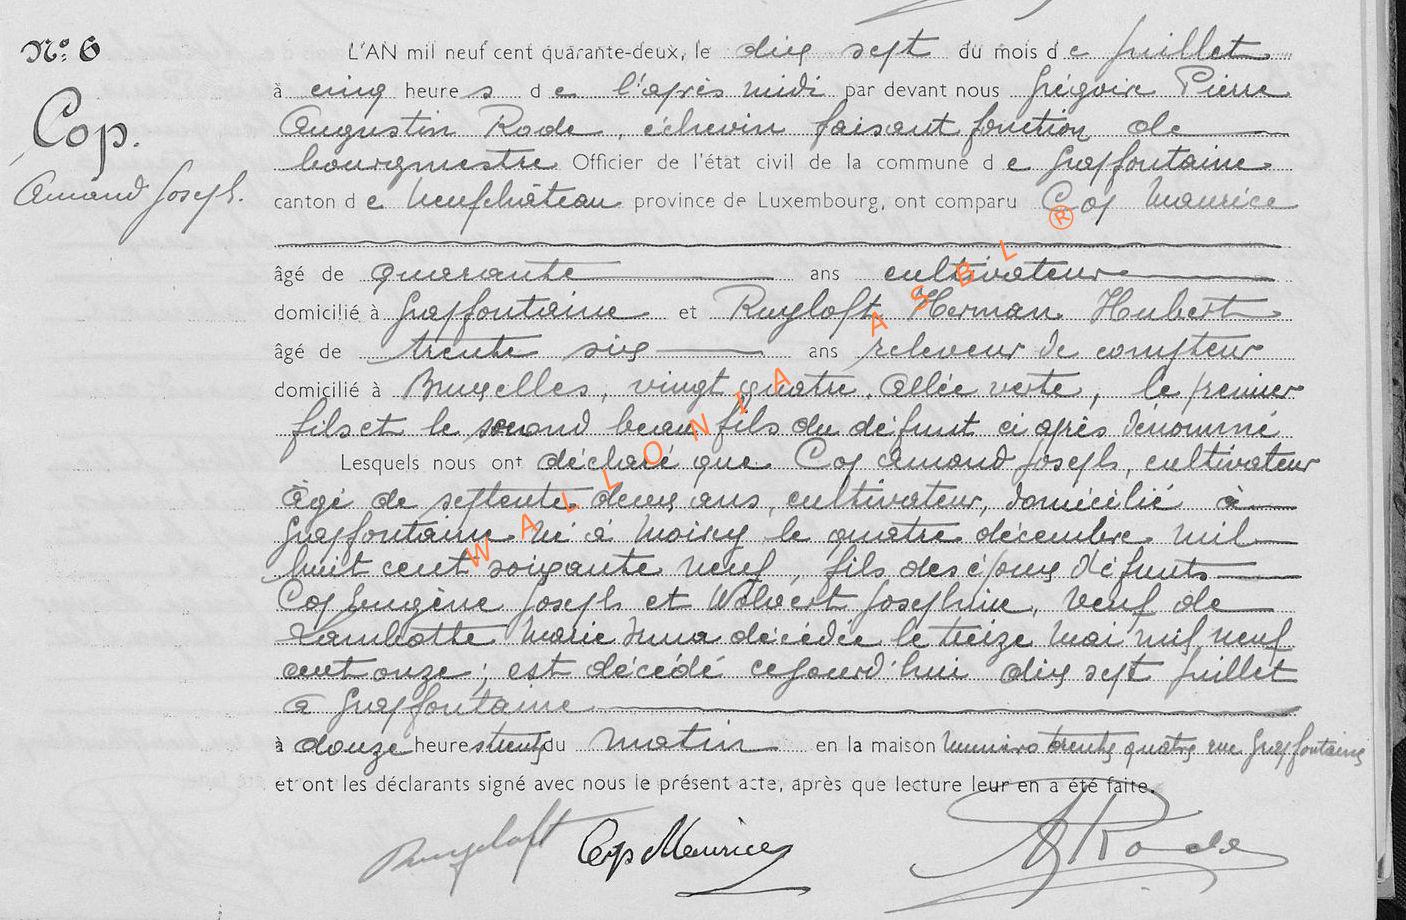 No. 6
Cop.
Amand Joseph.
L'AN mil neuf cent quarante-deux, le dix sept du mois de juillet
à cinq heures de l'après midi par devant nous Grégoire Pierre
Augustin Rode, échevin faisant fonction de
bourgmestre Officier de l'état civil de la commune de Grapfontaine
canton de Neufchâteau province de Luxembourg, ont comparu Cop Maurice
âgé de quarante ans cultivateur
domicilié à Grapfontaine et Ruyloft Herman Hubert
âgé de trente six ans releveur de compteur
domicilié à Bruxelles, vingt quatre, Allée verte, le premier
fils et le second beau fils du défunt ci après dénommé
Lesquels nous ont déclaré que Cop Amand Joseph, cultivateur
âgé de septente deux ans, cultivateur, domicilié à
Grapfontaine né à Moircy le quatre décembre mil
huit cent soixante neuf, fils des époux défunts
Cop Eugène Joseph et Joséphine, veuf de
Lambotte Marie Anna décédée le treize mai mil neuf
cent onze; est décédé cejourd'hui dix sept juillet
à Grapfontaine
à douze heures trente du matin en la maison numéro trente quatre rue Grapfontaine
et ont les déclarants signé avec nous le présent acte, après que lecture leur en a été faite.
Ruyloft Cop Maurice Rode
WALLONIA ASBL ®